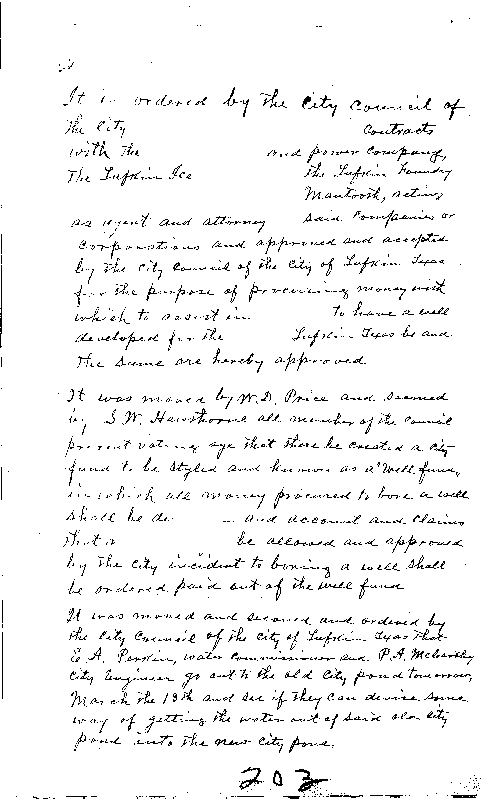 It is ordered by the City Council of
the City contracts
with the and power company,
The Lufkin Ice the Lufkin Foundry
Mantooth, acting
as agent and attorney said companies or
corporations and approved and accepted
by the city council of the City of Lufkin Texas
for the purpose of procuring money with
which to assist in to have a well
developed for the Lufkin Texas be and
the same are hereby approved
It was moved by W.D. Price and seconed
by S.W. Hawthorne all member of the council
present voting aye that there be created a city
fund to be styled and known as a "Well fund,
in which all money procured to bore a well
shall be de and account and claims
that a be allowed and approved
by the city incident to boring a well shall
be ordered paid out of the well fund
It was moved and seconed and ordered by
the City Council of the city of Lufkin Texas that
E. A. water commissioner and P.A.
City Engineer go out to the old City pond tomorrow,
March the 13th and see if they can devise some
way of getting the water out of said old city
pond into the new city pond.
203